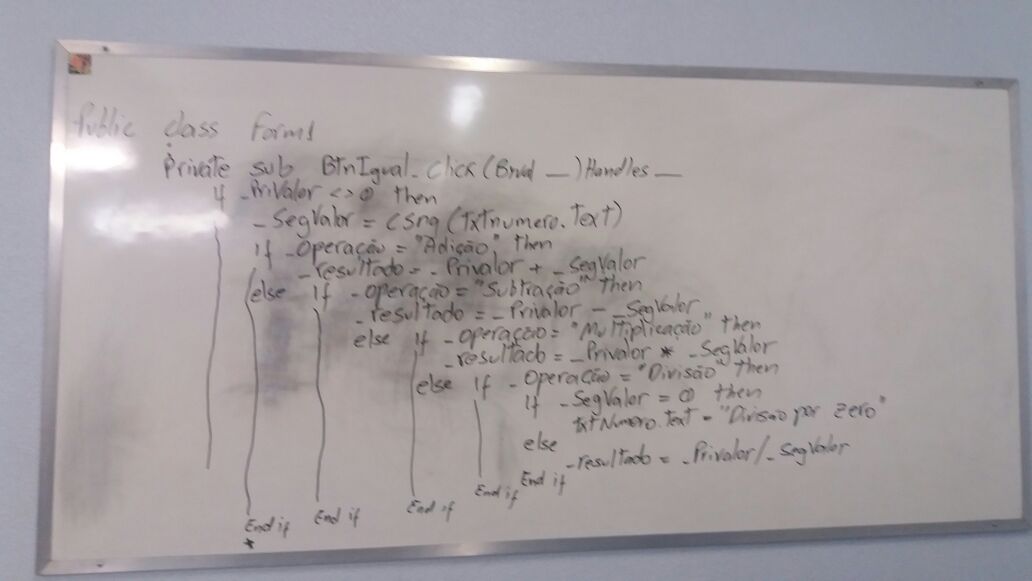 Public class Form1
Private sub BtnIgual_click(Brval __) Handles __
If _PriValor <> 0 then
_SegValor = CSng (Txtnumero.Text)
if _Operação = "Adição" then
_resultado = _Privalor + _SegValor
else if _operação = "Subtração" then
_resultado = _Privalor - _SegValor
else if _operação = "Multiplicação" then
_resultado = _Privalor * _SegValor
else if _Operação = "Divisão" then
if _SegValor = 0 then
txtNumero.Text = "Divisão por zero"
else
_resultado = _Privalor/_SegValor
End if
End if
End if
End if
End if
*